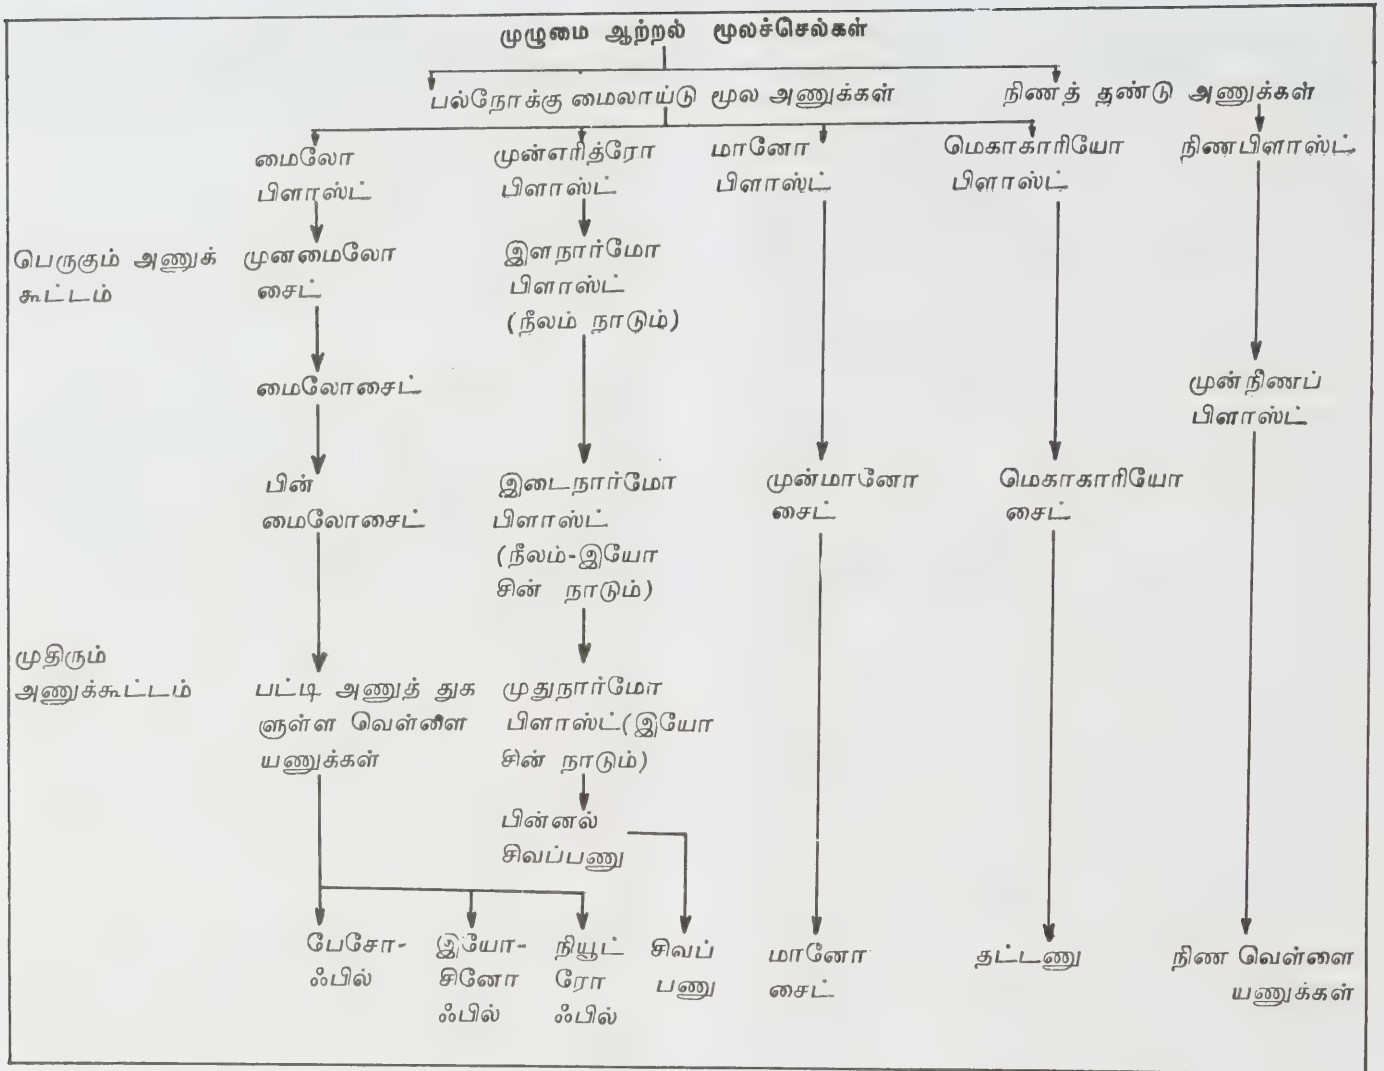 முழுமை ஆற்றல் மூலச்செல்கள்
பல்நோக்கு மைலாய்டு மூல அணுக்கள்
நிணத் தண்டு அணுக்கள்
மைலோ
பிளாஸ்ட்
முன்எரித்ரோ
பிளாஸ்ட்
மானோ
பிளாஸ்ட்
மெகாகாரியோ
பிளாஸ்ட்
நிணபிளாஸ்ட்
பெருகும் அணுக்
கூட்டம்
முனமைலோ
சைட்
இளநார்மோ
பிளாஸ்ட்
(நீலம் நாடும்)
மைலோசைட்
முன்நிணப்
பிளாஸ்ட்
பின்
மைலோசைட்
இடைநார்மோ
பிளாஸ்ட்
(நீலம்-இயோ
சின் நாடும்)
முன்மானோ
சைட்
மெகாகாரியோ
சைட்
முதிரும்
அணுக்கூட்டம்
பட்டி அணுத் துக
ளுள்ள வெள்ளை
யணுக்கள்
முதுநார்மோ
பிளாஸ்ட்(இயோ
சின் நாடும்)
பின்னல்
சிவப்பணு
பேசோ-
ஃபில்
இயோ-
சினோ
ஃபில்
நியூட்
ரோ
ஃபில்
சிவப்
பணு
மானோ
சைட்
தட்டணு
நிண வெள்ளை
யணுக்கள்